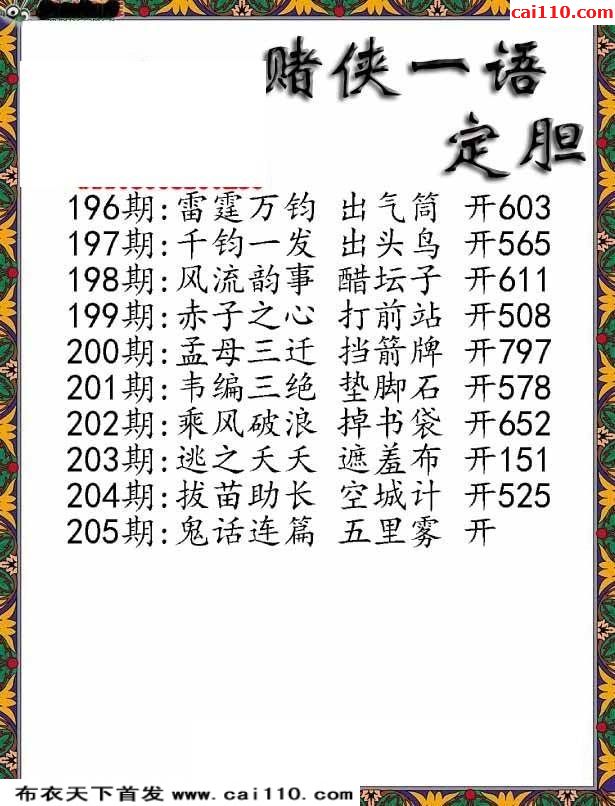 cai110.com
赌侠一语
定胆
196期:雷霆万钧 出气筒 开603
197期:千钧一发 出头鸟 开565
198期:风流韵事 醋坛子 开611
199期:赤子之心 打前站 开508
200期:孟母三迁 挡箭牌 开797
201期:韦编三绝 垫脚石 开578
202期:乘风破浪 掉书袋 开652
203期:逃之夭夭 遮羞布 开151
204期:拔苗助长 空城计 开525
205期:鬼话连篇 五里雾 开
布衣天下首发 www.cai110.com